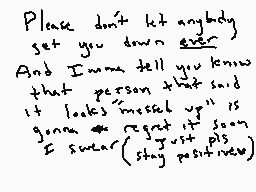 Please don't let anybody
get you down ever
And Imma tell you know
that person that said
it looks "messed up" is
gonna regret it soon
I swear (Just pls
stay positivew)